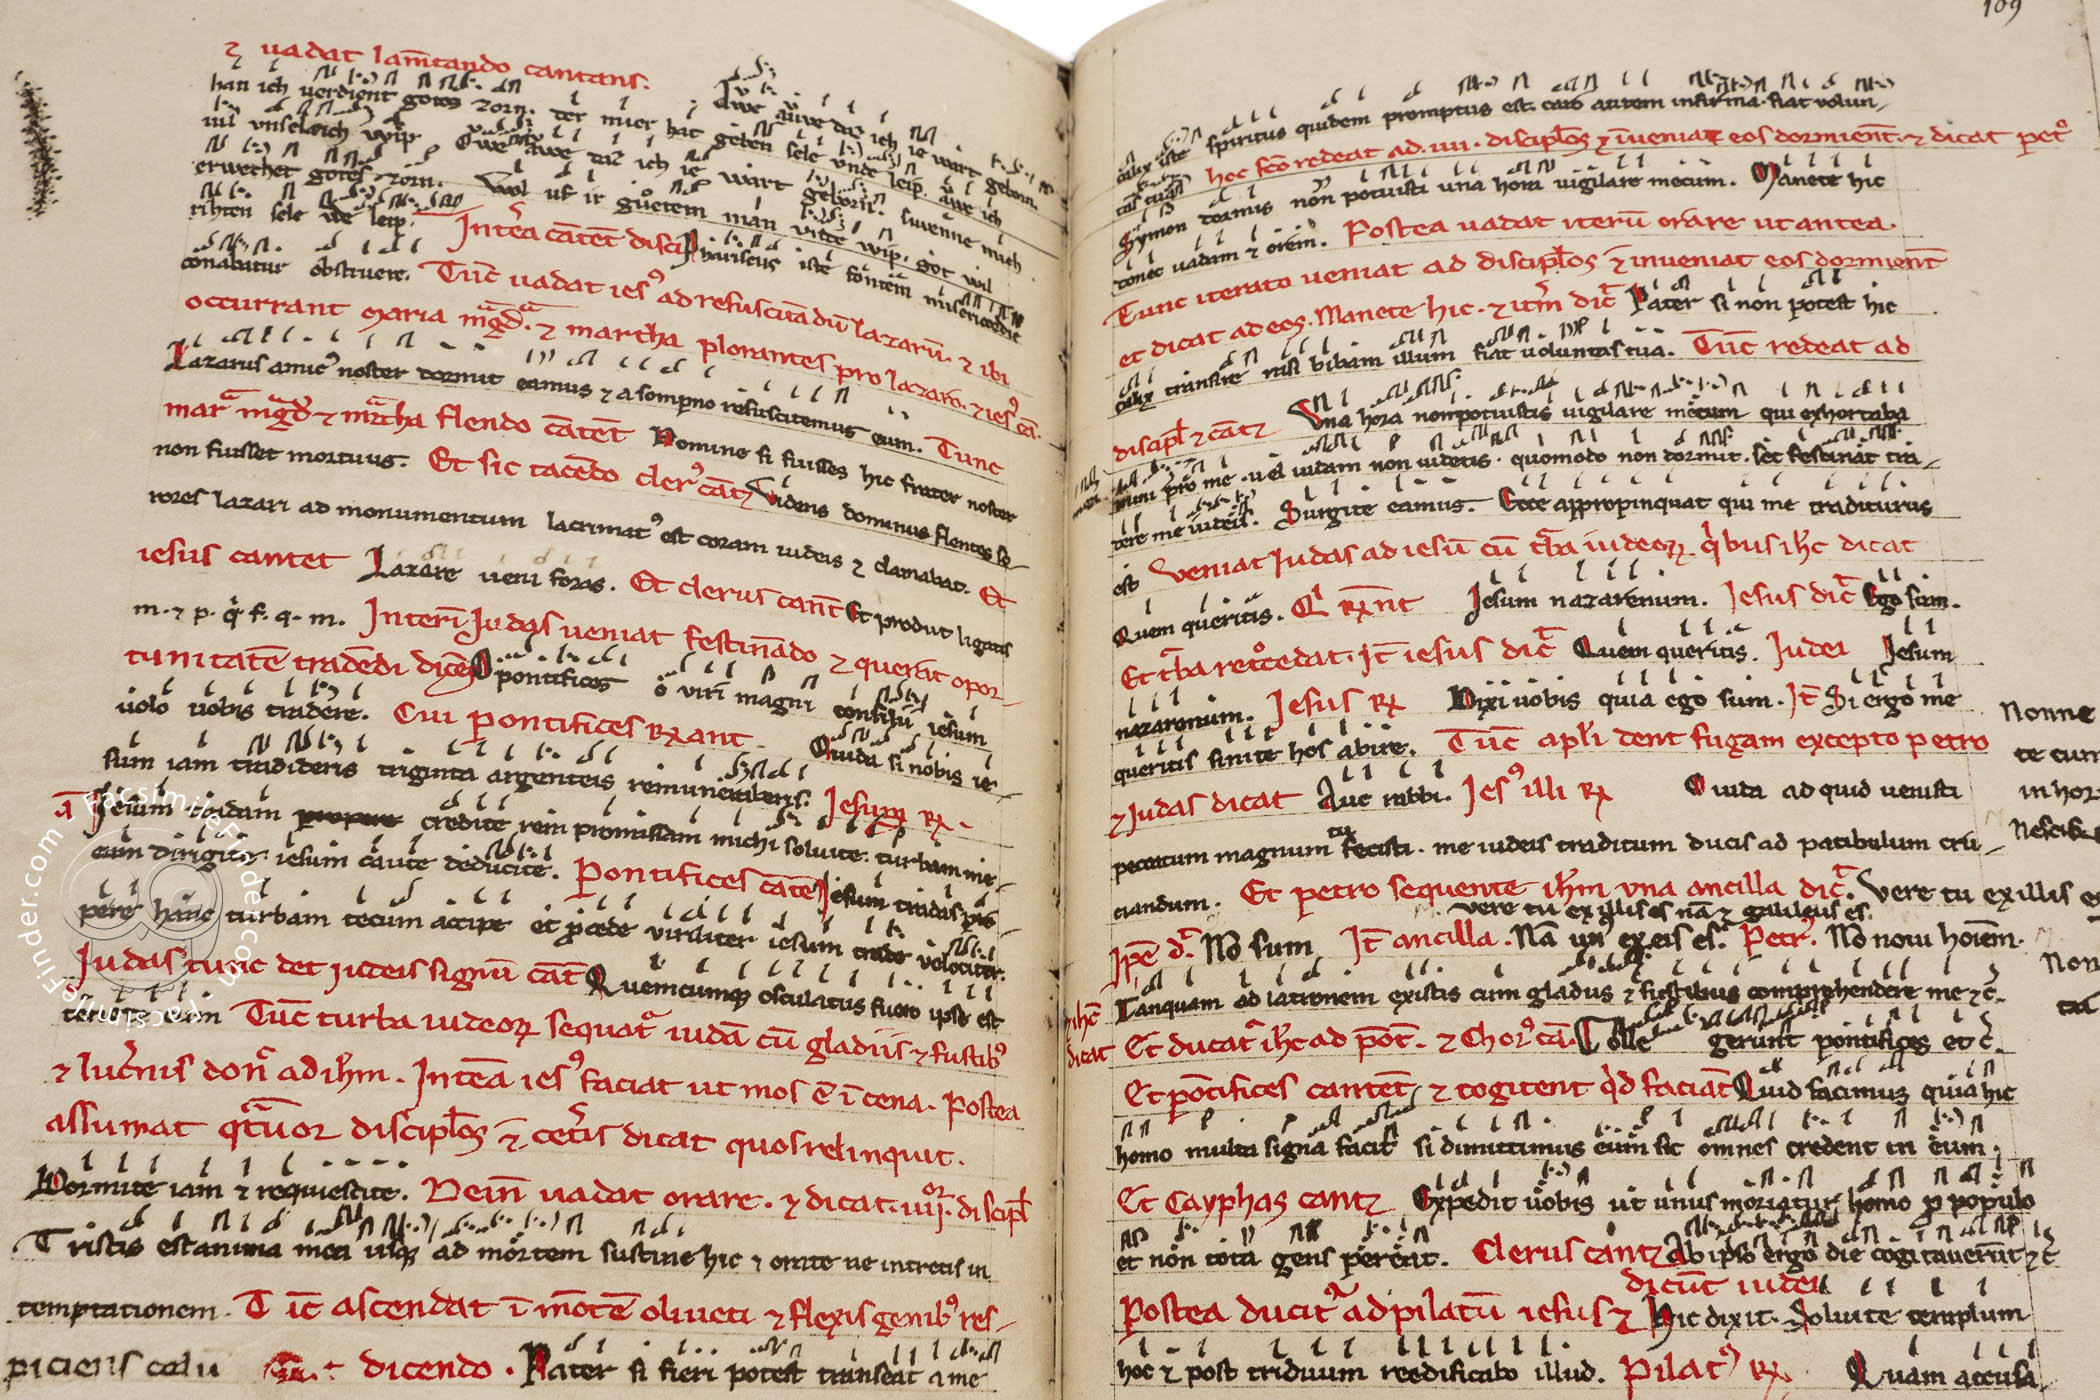 ⁊ vadat lam̄tando cantans.
han ich verdient gotes zorn. der mier hat geben sele vnde leip. Awe auwe daz ich ie wart geborn.
mil vnselaich wip Owe awe daz ich ie wart geborn. swenne mich
erwechet gotes zorn. wol uf ir guotem man vnde wip. got wil
rihten sele vde leip. Int̄ea cātet disci Phariseus iste fontem misericordie
conabatur obstruere. Tūc uadat iesꝰ ad resuscitādū lazarū. ⁊ ibi
occurrant maria magd. ⁊ martha plorantes pro lazaro. ⁊ iesꝰ cā.
Lazarus amicꝰ noster dormit eamus ⁊ a sompno resuscitemus eum. Tunc
mar̄ magd ⁊ martha flendo cātent Domine si fuisses hic frater noster
non fuisset mortuus. Et sic tacēdo clerꝰ cātꝫ Videns dominus flentes so-
rores lazari ad monumentum lacrimatꝰ est coram iudeis ⁊ clamabat. Et
iesus cantet Lazare ueni foras. Et clerus cant̄ Et prodiit ligatis
m. ⁊ p. q̄i f. q. m. Interī Judas ueniat festinādo ⁊ querāt opor-
tunitatē tradēdi dicēs O pontifices o viri magni consilii iesum
uolo uobis tradere. Cui pontifices R̄ant. O iuda si nobis ie-
sum iam tradideris triginta argenteis remuneraberis. Jesum R̄
Jesum tradam credite rem promissam michi soluite. turbam me-
cum dirigite. iesum caute deducite. Pontifices cātēt Jesum tradas pro-
pere hanc turbam tecum accipe et p̄cede viriliter iesum trade velociter.
Judas tunc det iudeis signū cāt̄ Quemcumqꝫ osculatus fuero ipse est
tenete eum Tūc turba iudeorꝫ sequat̄ iudā cū gladiis ⁊ fustibꝰ
⁊ luc̄nis don̄ ad ih̄m. Intēa iesꝰ faciat ut mos ē ī cena. Postea
assumat q̄tuor discipl̄os ⁊ cet̄is dicat quos relinquit.
Dormite iam ⁊ requiescite. Dein̄ uadat orare. ⁊ dicat. iiijor. discipl̄
Tristis est anima mea usqꝫ ad mortem sustine hic ⁊ orate ne intretis in
temptationem. Tīc ascendat ī mōtē oliueti ⁊ flexis genibꝰ res-
piciens celū dicendo. Pater si fieri potest transeat a me
109
calix iste spiritus quidem promptus est. caro autem infirma. fiat volun-
tas tua. Hoc fc̄o redeat ad. iiii. discipl̄os ⁊ īveniat eos dormient̄. ⁊ dicat petꝰ
Symon dormis non potuisti una hora uigilare mecum. Manete hic
donec uadam ⁊ orem. Postea uadat iterū orare ut antea.
Tunc iterato ueniat ad discipl̄os ⁊ inueniat eos dormient̄
et dicat ad eos. Manete hic. ⁊ it̄m dic̄ Pater si non potest hic
calix transire nisi bibam illum fiat uoluntas tua. Tūc redeat ad
discipl̄ ⁊ cātꝫ Vna hora non potuistis uigilare mecum qui exhortaba
mini pro me. uel iudam non uidetis. quomodo non dormit. set festinat tra-
dere me iudeis. Surgite eamus. Ecce appropinquat qui me traditurus
est Veniat Judas ad iesū cū tba iudeorꝫ. q̄ibus ih̄c dicat
Quem queritis. Qi R̄ent Jesum nazarenum. Jesus dic̄ Ego sum.
Et tba retocedat. It̄ iesus dic̄ Quem queritis. Judei Jesum
nazarenum. Jesus R̄ Dixi uobis quia ego sum. It̄ Si ergo me
queritis sinite hos abire. Tūc apl̄i dent fugam excepto petro
⁊ Judas dicat Aue rabbi. Jesꝰ illi R̄ O iuda ad quid uenisti
peccatum magnum tu fecisti. me iudeis traditum ducis ad patibulum cru-
ciandum. Et petro sequente ih̄m vna ancilla dic̄. Vere tu ex illis es
Vere tu ex illis es nā ⁊ galileus es.
Ipē d̄ Nō sum It̄ ancilla. Nā unꝰ ex eis es. Petrꝰ. Nō noui hoīem.
ihc̄ dicat
Tanquam ad latronem existis cum gladiis ⁊ fustibus comprehendere me ⁊ c̄.
Et ducat̄ ih̄c ad pōt̄. ⁊ chorꝰ cā. Tollegerunt pontifices et c̄.
Et pōtifices cantent ⁊ cogitent q̄d faciāt Quid facimus quia hic
homo multa signa facit si dimittimus eum sic omnes credent in eum.
Et Cayphas cantꝫ Expedit uobis ut unus moriatur homo p̄ populo
et non tota gens pereat. Clerus cantꝫ Ab ipso ergo die cogitauerūt ⁊ c̄
dicūt iudei
Postea ducit̄ ad pilatū iesus ⁊ Hic dixit. Soluite templum
hoc ⁊ post triduum reedificabo illud. Pilatꝰ R̄ Quam accusa-
Nonne
te cum
in hor
Nescis
Non